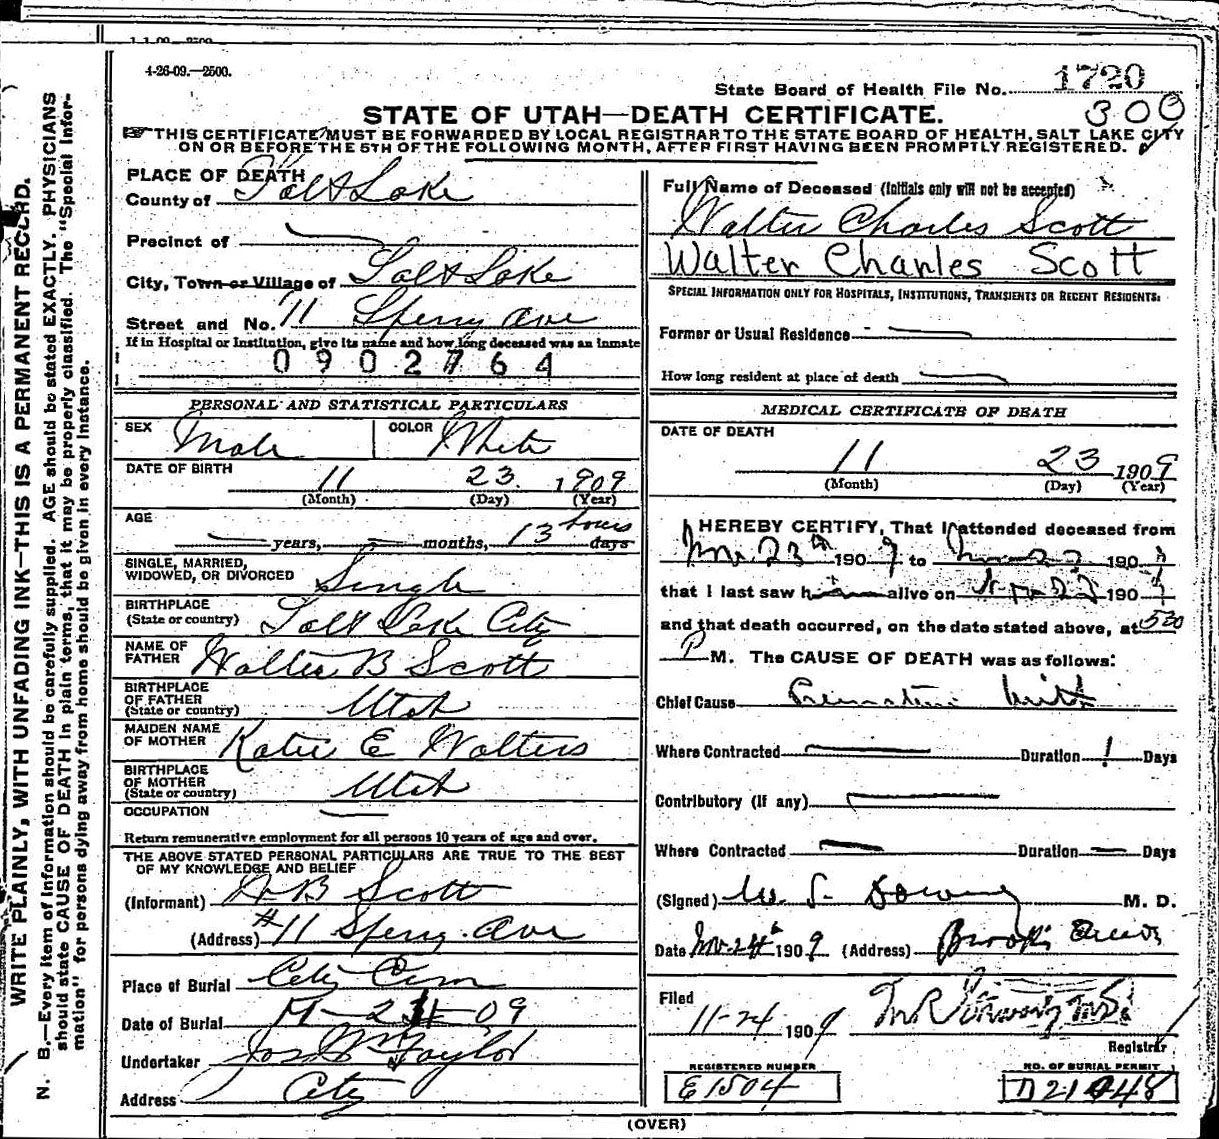 4-26-09.—2500.
State Board of Health File No. 1720
STATE OF UTAH—DEATH CERTIFICATE. 300
THIS CERTIFICATE MUST BE FORWARDED BY LOCAL REGISTRAR TO THE STATE BOARD OF HEALTH, SALT LAKE CITY
ON OR BEFORE THE 5TH OF THE FOLLOWING MONTH, AFTER FIRST HAVING BEEN PROMPTLY REGISTERED.
WRITE PLAINLY, WITH UNFADING INK—THIS IS A PERMANENT RECORD.
N. B.—Every item of information should be carefully supplied. AGE should be stated EXACTLY. PHYSICIANS
should state CAUSE OF DEATH in plain terms, that it may be properly classified. The "Special Infor-
mation" for persons dying away from home should be given in every instance.
PLACE OF DEATH
County of Salt Lake
Precinct of
City, Town or Village of Salt Lake
Street and No. 11 Sperry Ave
If in Hospital or Institution, give its name and how long deceased was an inmate
0902764
PERSONAL AND STATISTICAL PARTICULARS
SEX Male COLOR White
DATE OF BIRTH 11 23 1909
(Month) (Day) (Year)
AGE
years, months, 13 hours days
SINGLE, MARRIED,
WIDOWED, OR DIVORCED Single
BIRTHPLACE
(State or country) Salt Lake City
NAME OF
FATHER Walter B Scott
BIRTHPLACE
OF FATHER
(State or country) Utah
MAIDEN NAME
OF MOTHER Katie E Walters
BIRTHPLACE
OF MOTHER
(State or country) Utah
OCCUPATION
Return remunerative employment for all persons 10 years of age and over.
THE ABOVE STATED PERSONAL PARTICULARS ARE TRUE TO THE BEST
OF MY KNOWLEDGE AND BELIEF
(Informant) W B Scott
(Address) #11 Sperry Ave
Place of Burial City Cem
Date of Burial 09
Undertaker Jos Wm Taylor
Address City
Full Name of Deceased (Initials only will not be accepted)
Walter Charles Scott
Walter Charles Scott
SPECIAL INFORMATION ONLY FOR HOSPITALS, INSTITUTIONS, TRANSIENTS OR RECENT RESIDENTS:
Former or Usual Residence
How long resident at place of death
MEDICAL CERTIFICATE OF DEATH
DATE OF DEATH
11 23 1909
(Month) (Day) (Year)
I HEREBY CERTIFY, That I attended deceased from
Nov. 23rd 1909 to 190
that I last saw him alive on 190
and that death occurred, on the date stated above, at 530
P M. The CAUSE OF DEATH was as follows:
Chief Cause Premature birth
Where Contracted Duration 1 Days
Contributory (If any)
Where Contracted Duration Days
(Signed) M. D.
Date Nov. 24th 1909 (Address) Brooks
Filed
11-24 1909
Registrar
REGISTERED NUMBER
E1504
NO. OF BURIAL PERMIT
(OVER)